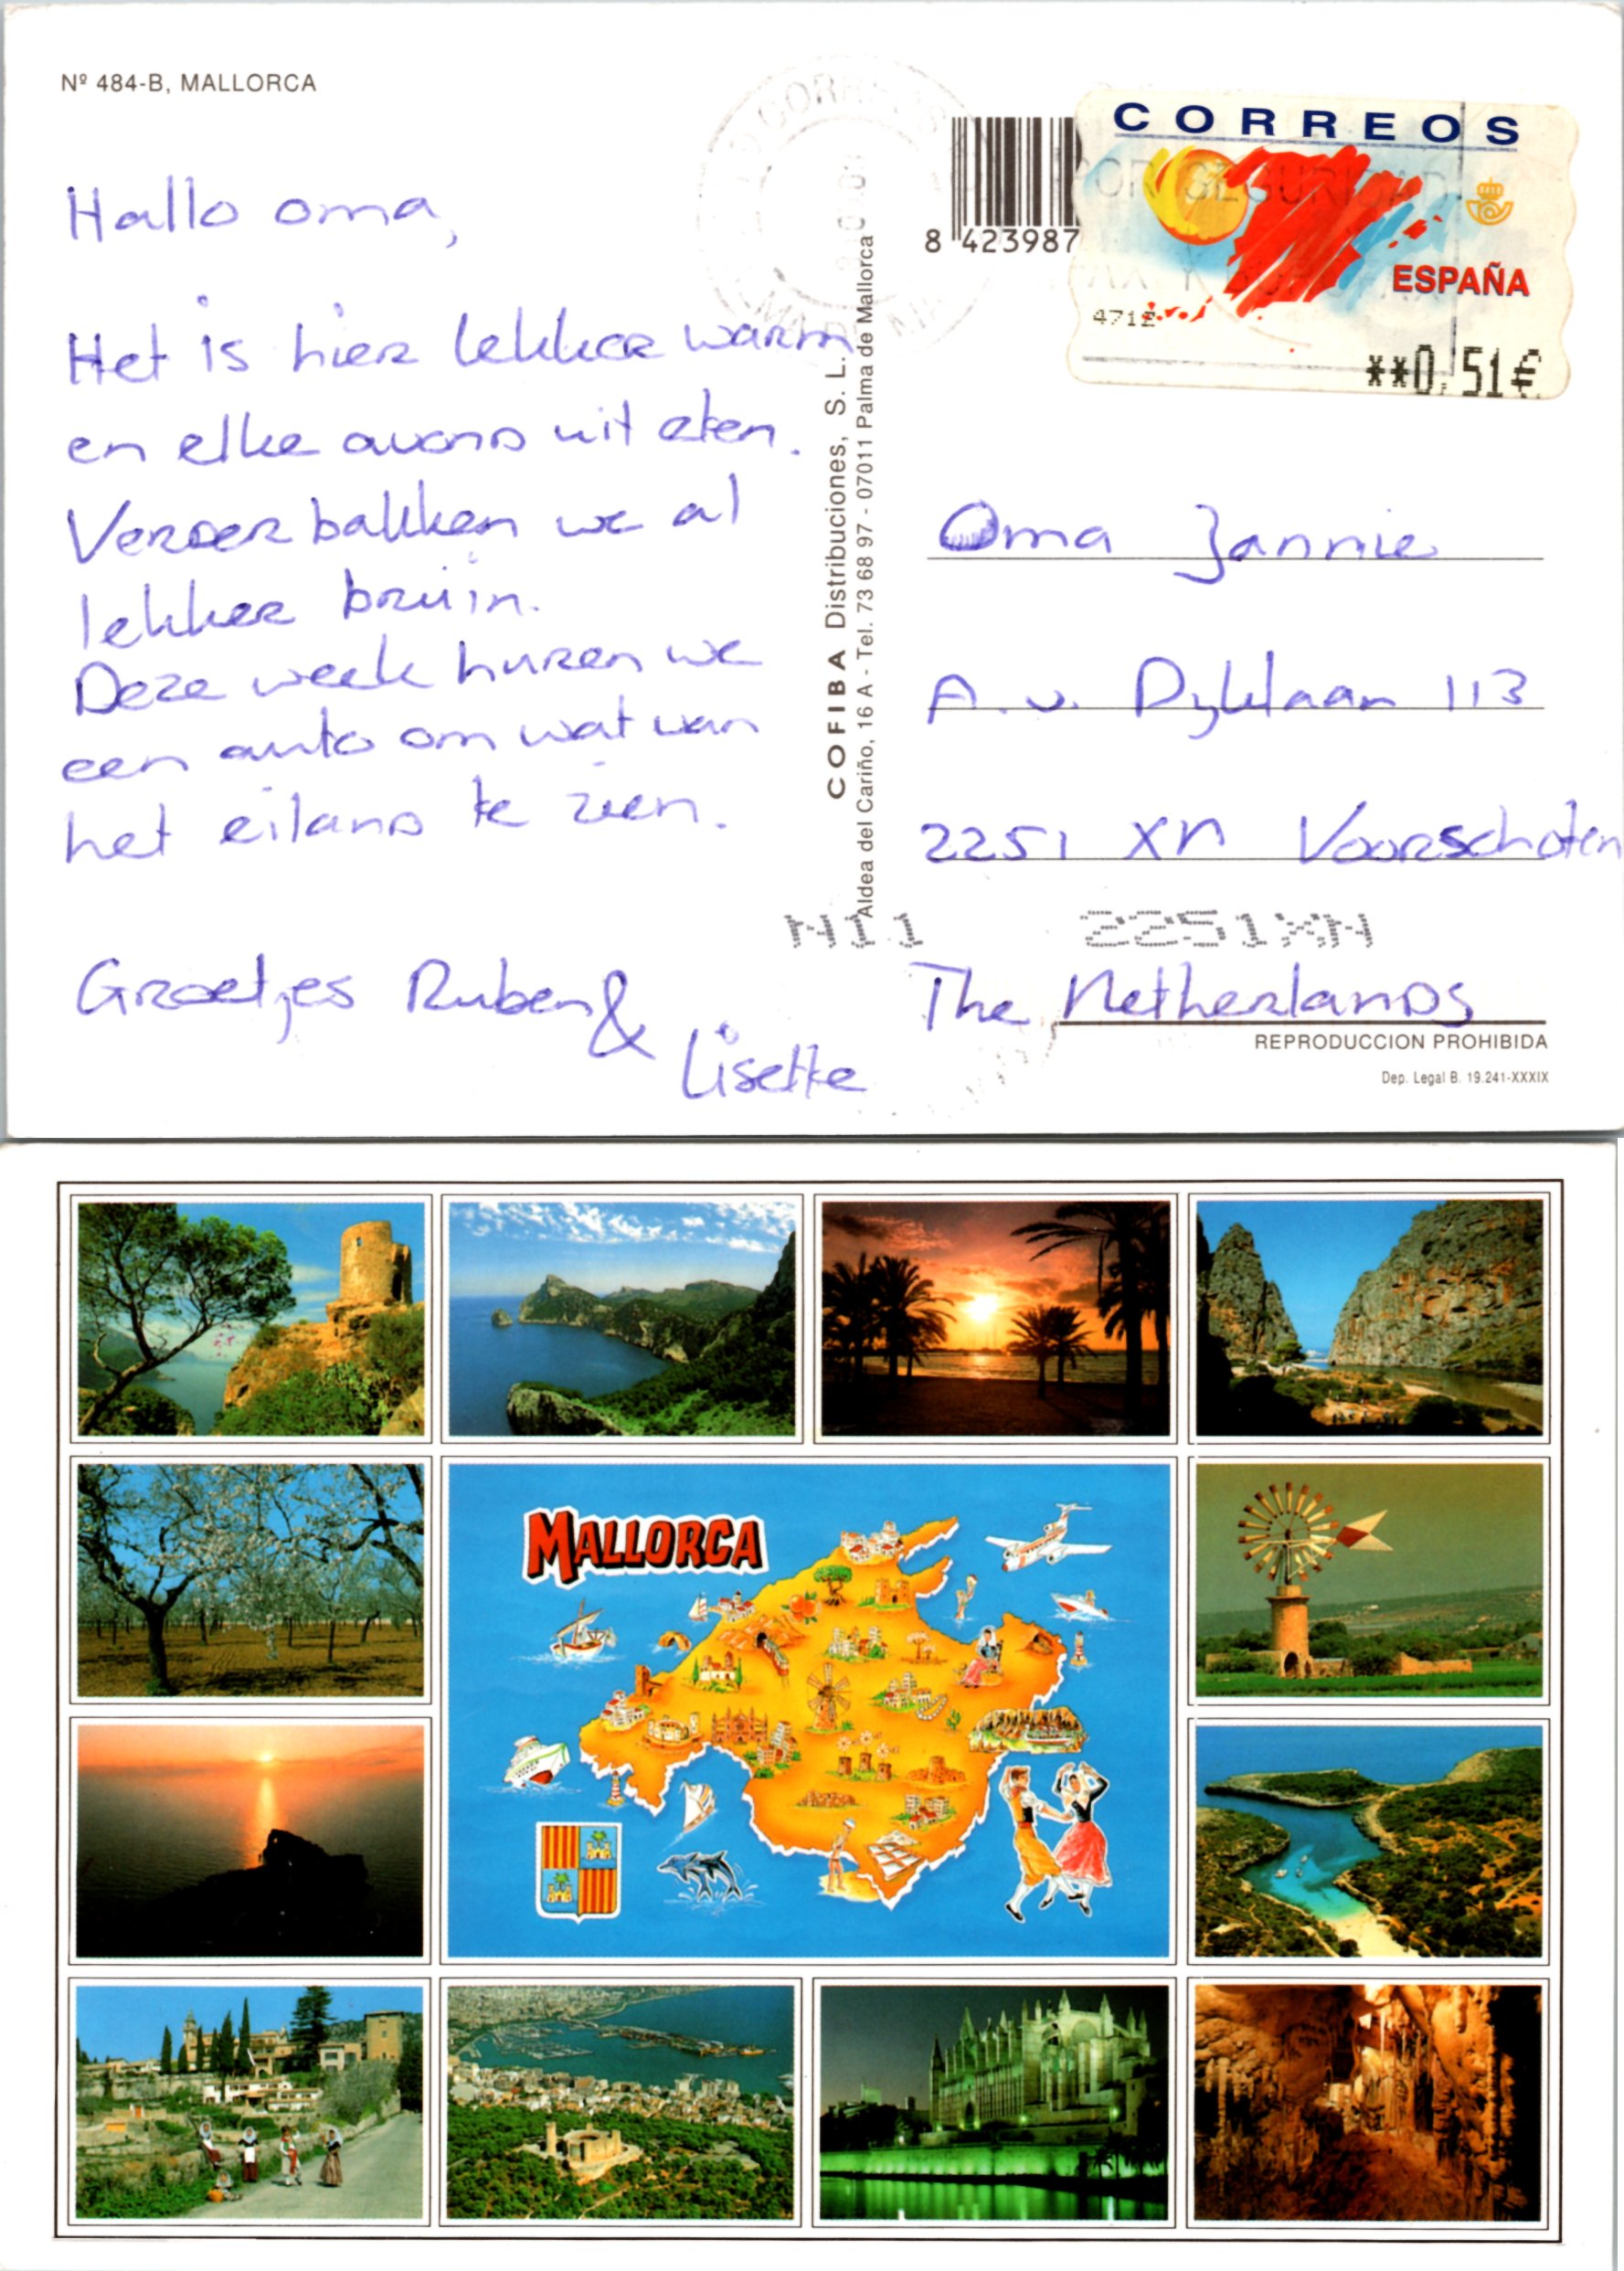 Nº 484-B, MALLORCA
Hallo oma,
Het is hier lekker warm
en elke avond uit eten.
Verder bakken we al
lekker bruin.
Deze week huren we
een auto om wat van
het eiland te zien.
Groetjes Ruben &
Lisette
COFIBA Distribuciones, S. L.
Aldea del Cariño, 16 A - Tel. 73 68 97 - 07011 Palma de Mallorca
CORREOS
8 423987
CORREOS
POR SEGURIDAD
ESPAÑA
4712
**0,51€
Oma Jannie
A.v. Dyklaan 113
2251 XN Voorschoten
2251XN
The Netherlands
REPRODUCCION PROHIBIDA
Dep. Legal B. 19.241-XXXIX
MALLORCA